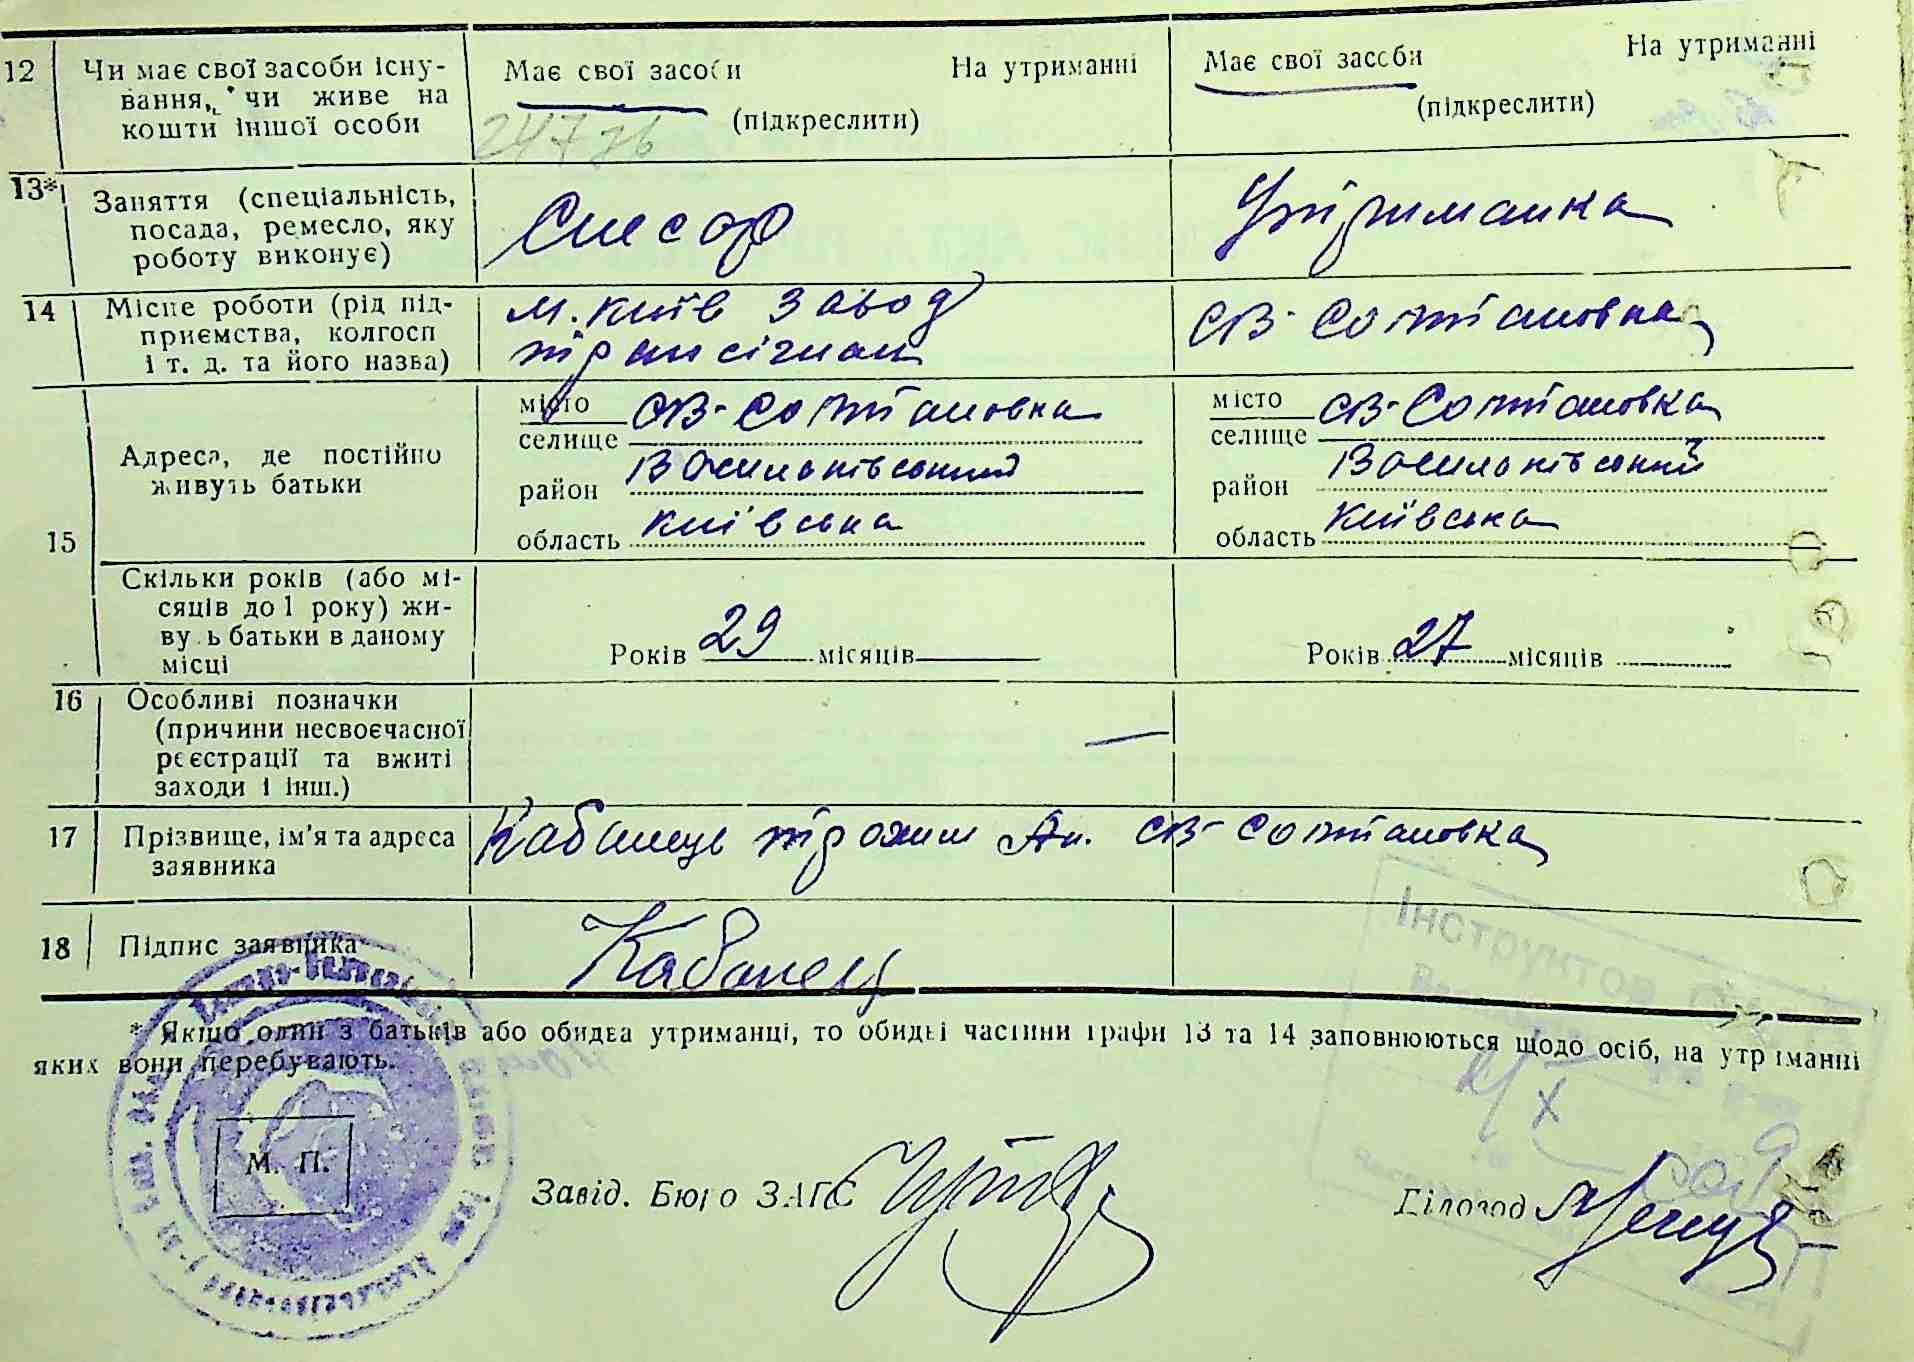 12 Чи має свої засоби існу-
вання, чи живе на
кошти іншої особи
Має свої засоби На утриманні
(підкреслити)
247 зв
Має свої засоби На утриманні
(підкреслити)
13* Заняття (спеціальність,
посада, ремесло, яку
роботу виконує)
Слесар
Утриманка
14 Місце роботи (рід під-
приємства, колгосп
і т. д. та його назва)
м. Київ Завод
транссігнал
СВ-Солтановка
15
Адреса, де постійно
живуть батьки
місто СВ-Солтановка
селище
район Васильківський
область Київська
місто СВ-Солтановка
селище
район Васильківський
область Київська
Скільки років (або мі-
сяців до 1 року) жи-
вуть батьки в даному
місці
Років 29 місяців
Років 27 місяців
16 Особливі позначки
(причини несвоєчасної
реєстрації та вжиті
заходи і інш.)
—
17 Прізвище, ім'я та адреса
заявника
Кабанець Ан. СВ-Солтановка
18 Підпис заявника
Кабанец
* Якщо один з батьків або обидва утриманці, то обидві частини графи 13 та 14 заповнюються щодо осіб, на утриманні
яких вони перебувають.
М. П.
Завід. Бюро ЗАГС
Діловод
Інструктов